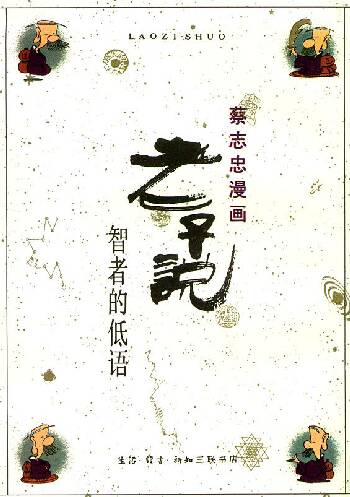 LAOZI SHUO
蔡志忠漫画
老子説
智者的低语
生活·讀書·新知三联书店